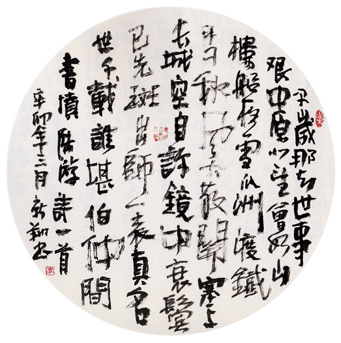 早歲那知世事
艱中原北望氣如山
樓船夜雪瓜洲渡鐵
馬秋風大散關塞上
長城空自許鏡中衰鬢
已先斑出師一表真名
世千載誰堪伯仲間
書憤陸游詩一首
辛卯年十二月